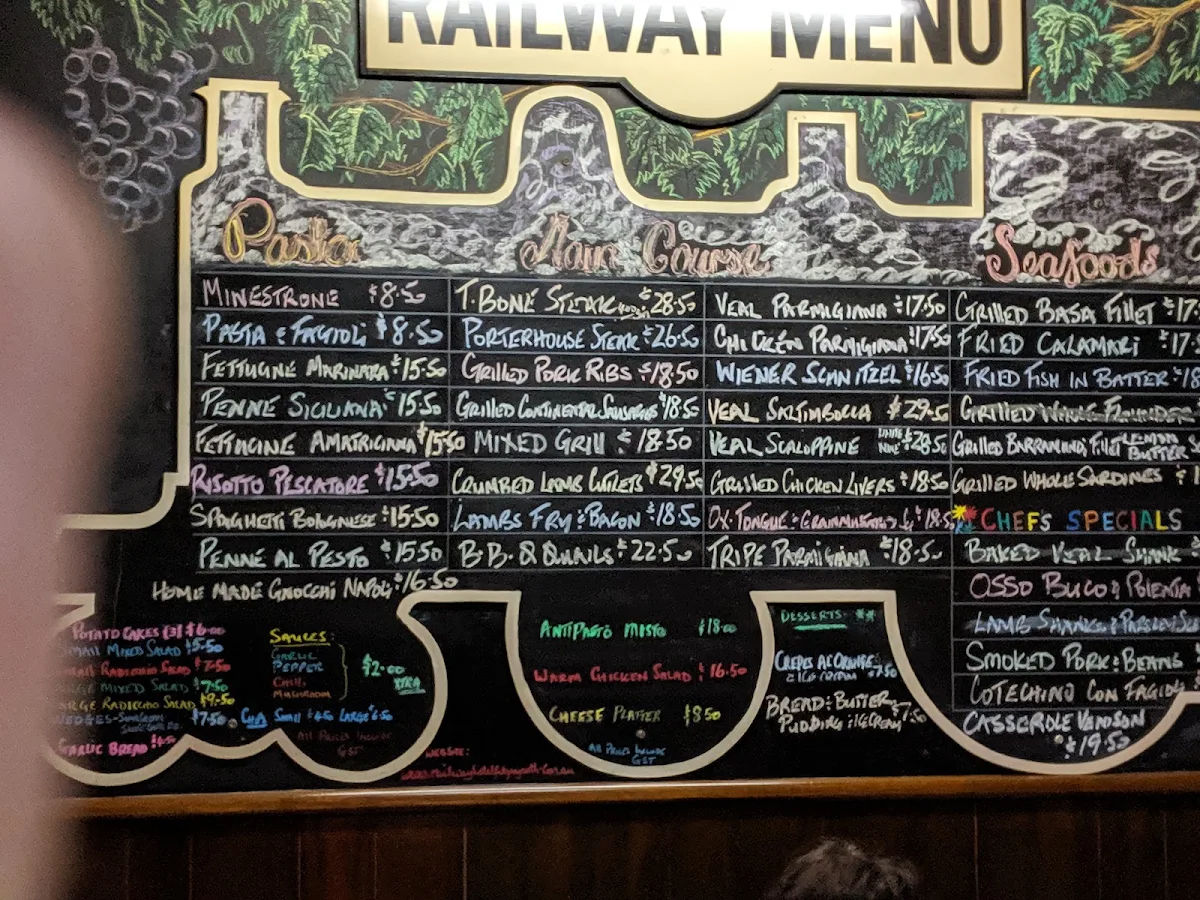 RAILWAY MENU
Pasta
MINESTRONE $8.50
PASTA E FAGIOLI $8.50
FETTUCINE MARINARA $15.50
PENNE SICILIANA $15.50
FETTUCINE AMATRICIANA $15.50
RISOTTO PESCATORE $15.50
SPAGHETTI BOLOGNESE $15.50
PENNE AL PESTO $15.50
HOME MADE GNOCCHI NAPOLI $16.50
Main Course
T. BONE STEAK $28.50
PORTERHOUSE STEAK $26.50
GRILLED PORK RIBS $18.50
GRILLED CONTINENTAL SAUSAGES $18.50
MIXED GRILL $18.50
CRUMBED LAMB CUTLETS $29.50
LAMBS FRY & BACON $18.50
B.B.Q QUAILS $22.50
VEAL PARMIGIANA $17.50
CHICKEN PARMIGIANA $17.50
WIENER SCHNITZEL $16.50
VEAL SALTIMBOCCA $29.50
VEAL SCALOPPINE WHITE WINE $28.50
GRILLED CHICKEN LIVERS $18.50
OX-TONGUE $18.50
TRIPE PARMIGIANA $18.50
Seafoods
GRILLED BASA FILLET $17
FRIED CALAMARI $17
FRIED FISH IN BATTER $18
GRILLED WHOLE FLOUNDER
GRILLED BARRAMUNDI FILLET LEMON BUTTER
GRILLED WHOLE SARDINES $
CHEFS SPECIALS
BAKED VEAL SHANK
OSSO BUCO & POLENTA
LAMB SHANKS &
SMOKED PORK & BEANS
COTECHINO CON FAGIOLI
CASSEROLE VENISON
$19.50
POTATO CAKES (3) $6.00
SMALL MIXED SALAD $5.50
SMALL RADICCHIO SALAD $7.50
LARGE MIXED SALAD $7.50
LARGE RADICCHIO SALAD $9.50
WEDGES $7.50
GARLIC BREAD
SAUCES:
GARLIC
PEPPER
CHILLI
MUSHROOM
$2.00
XTRA
SMALL $4.50 LARGE $6.50
All Prices Include
GST
WEBSITE:
ANTIPASTO MISTO $18.00
WARM CHICKEN SALAD $16.50
CHEESE PLATTER $8.50
All Prices Include
GST
DESSERTS
CREPES AL ORANGE
& ICE CREAM $7.50
BREAD & BUTTER
PUDDING & ICE CREAM $7.50